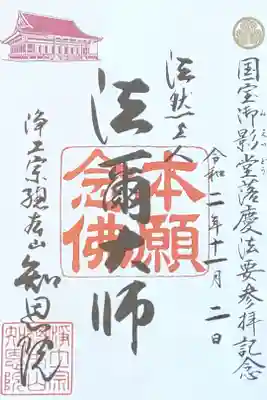 国宝御影堂落慶法要参拝記念
みえいどう
令和二年十一月二日
法然上人
法爾大師
本願念佛
浄土宗總本山知恩院
浄土宗總本山知恩院